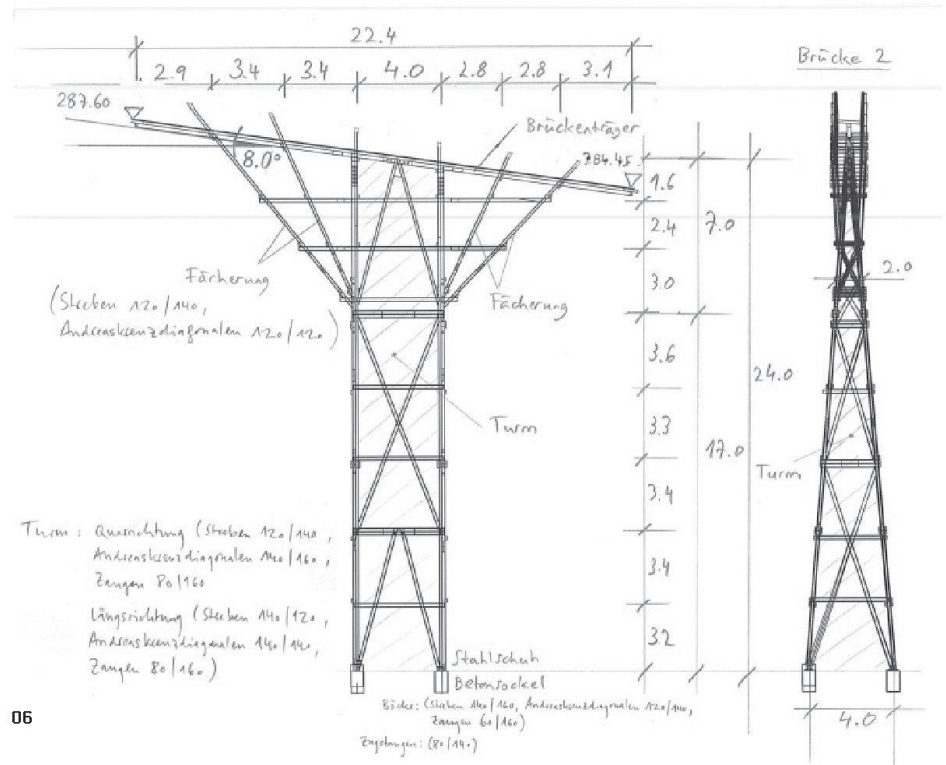 22.4
2.9 3.4 3.4 4.0 2.8 2.8 3.1
Brücke 2
287.60
Brückenträger
8.0°
284.45
1.6
2.4
7.0
3.0
2.0
Fächerung
Fächerung
(Streben 120/140,
Andreaskreuzdiagonalen 120/120)
3.6
24.0
Turm
3.3
17.0
Turm
3.4
3.4
3.2
Turm: Querrichtung (Streben 120/140,
Andreaskreuzdiagonalen 140/160,
Zangen 80/160
Längsrichtung (Streben 140/120,
Andreaskreuzdiagonalen 140/140,
Zangen 80/160)
Stahlschuh
Betonsockel
Böcke: (Streben 140/160, Andreaskreuzdiagonalen 120/140,
Zangen 60/160)
Zugstangen: (80/140)
4.0
06